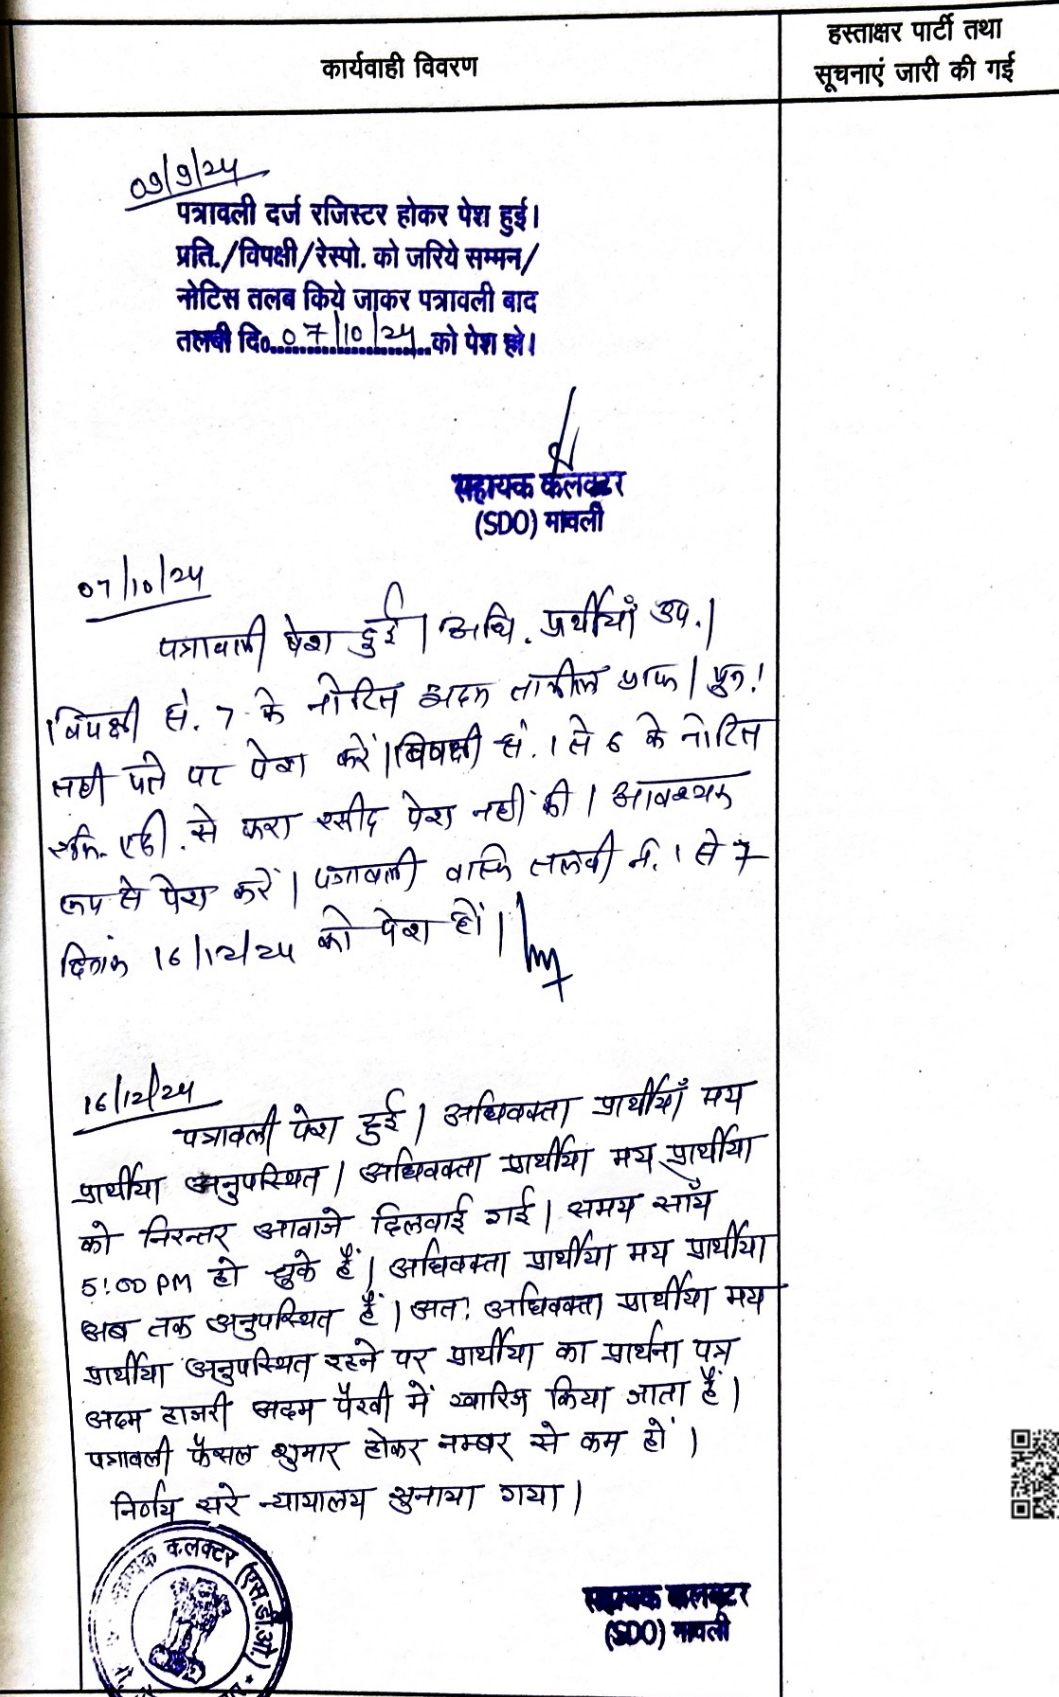 कार्यवाही विवरण
हस्ताक्षर पार्टी तथा
सूचनाएं जारी की गई
09/9/24
पत्रावली दर्ज रजिस्टर होकर पेश हुई।
प्रति./विपक्षी/रेस्पो. को जरिये सम्मन/
नोटिस तलब किये जाकर पत्रावली बाद
तलबी दि०..07/10/24..को पेश हो।
सहायक कलक्टर
(SDO) मावली
07/10/24
पत्रावली पेश हुई। अधि. प्रार्थीयाँ उप.।
विपक्षी सं. 7 के नोटिस अदम तामील प्राप्त। पुन:
सही पते पर पेश करें। विपक्षी सं. 1 से 6 के नोटिस
एडी. से करा रसीद पेश नहीं की। आवश्यक
रूप से पेश करें। पत्रावली वास्ते तलबी नं. 1 से 7
दिनांक 16/12/24 को पेश हों।
16/12/24
पत्रावली पेश हुई। अधिवक्ता प्रार्थीयाँ मय
प्रार्थीया अनुपस्थित। अधिवक्ता प्रार्थीया मय प्रार्थीया
को निरन्तर आवाजे दिलवाई गई। समय साँय
5:00 PM हो चुके हैं। अधिवक्ता प्रार्थीया मय प्रार्थीया
अब तक अनुपस्थित हैं। अत: अधिवक्ता प्रार्थीया मय
प्रार्थीया अनुपस्थित रहने पर प्रार्थीया का प्रार्थना पत्र
अदम हाजरी अदम पैरवी में खारिज किया जाता हैं।
पत्रावली फैसल शुमार होकर नम्बर से कम हों।
निर्णय सरे न्यायालय सुनाया गया।
सहायक कलक्टर (एस.डी.ओ.)
सहायक कलक्टर
(SDO) मावली